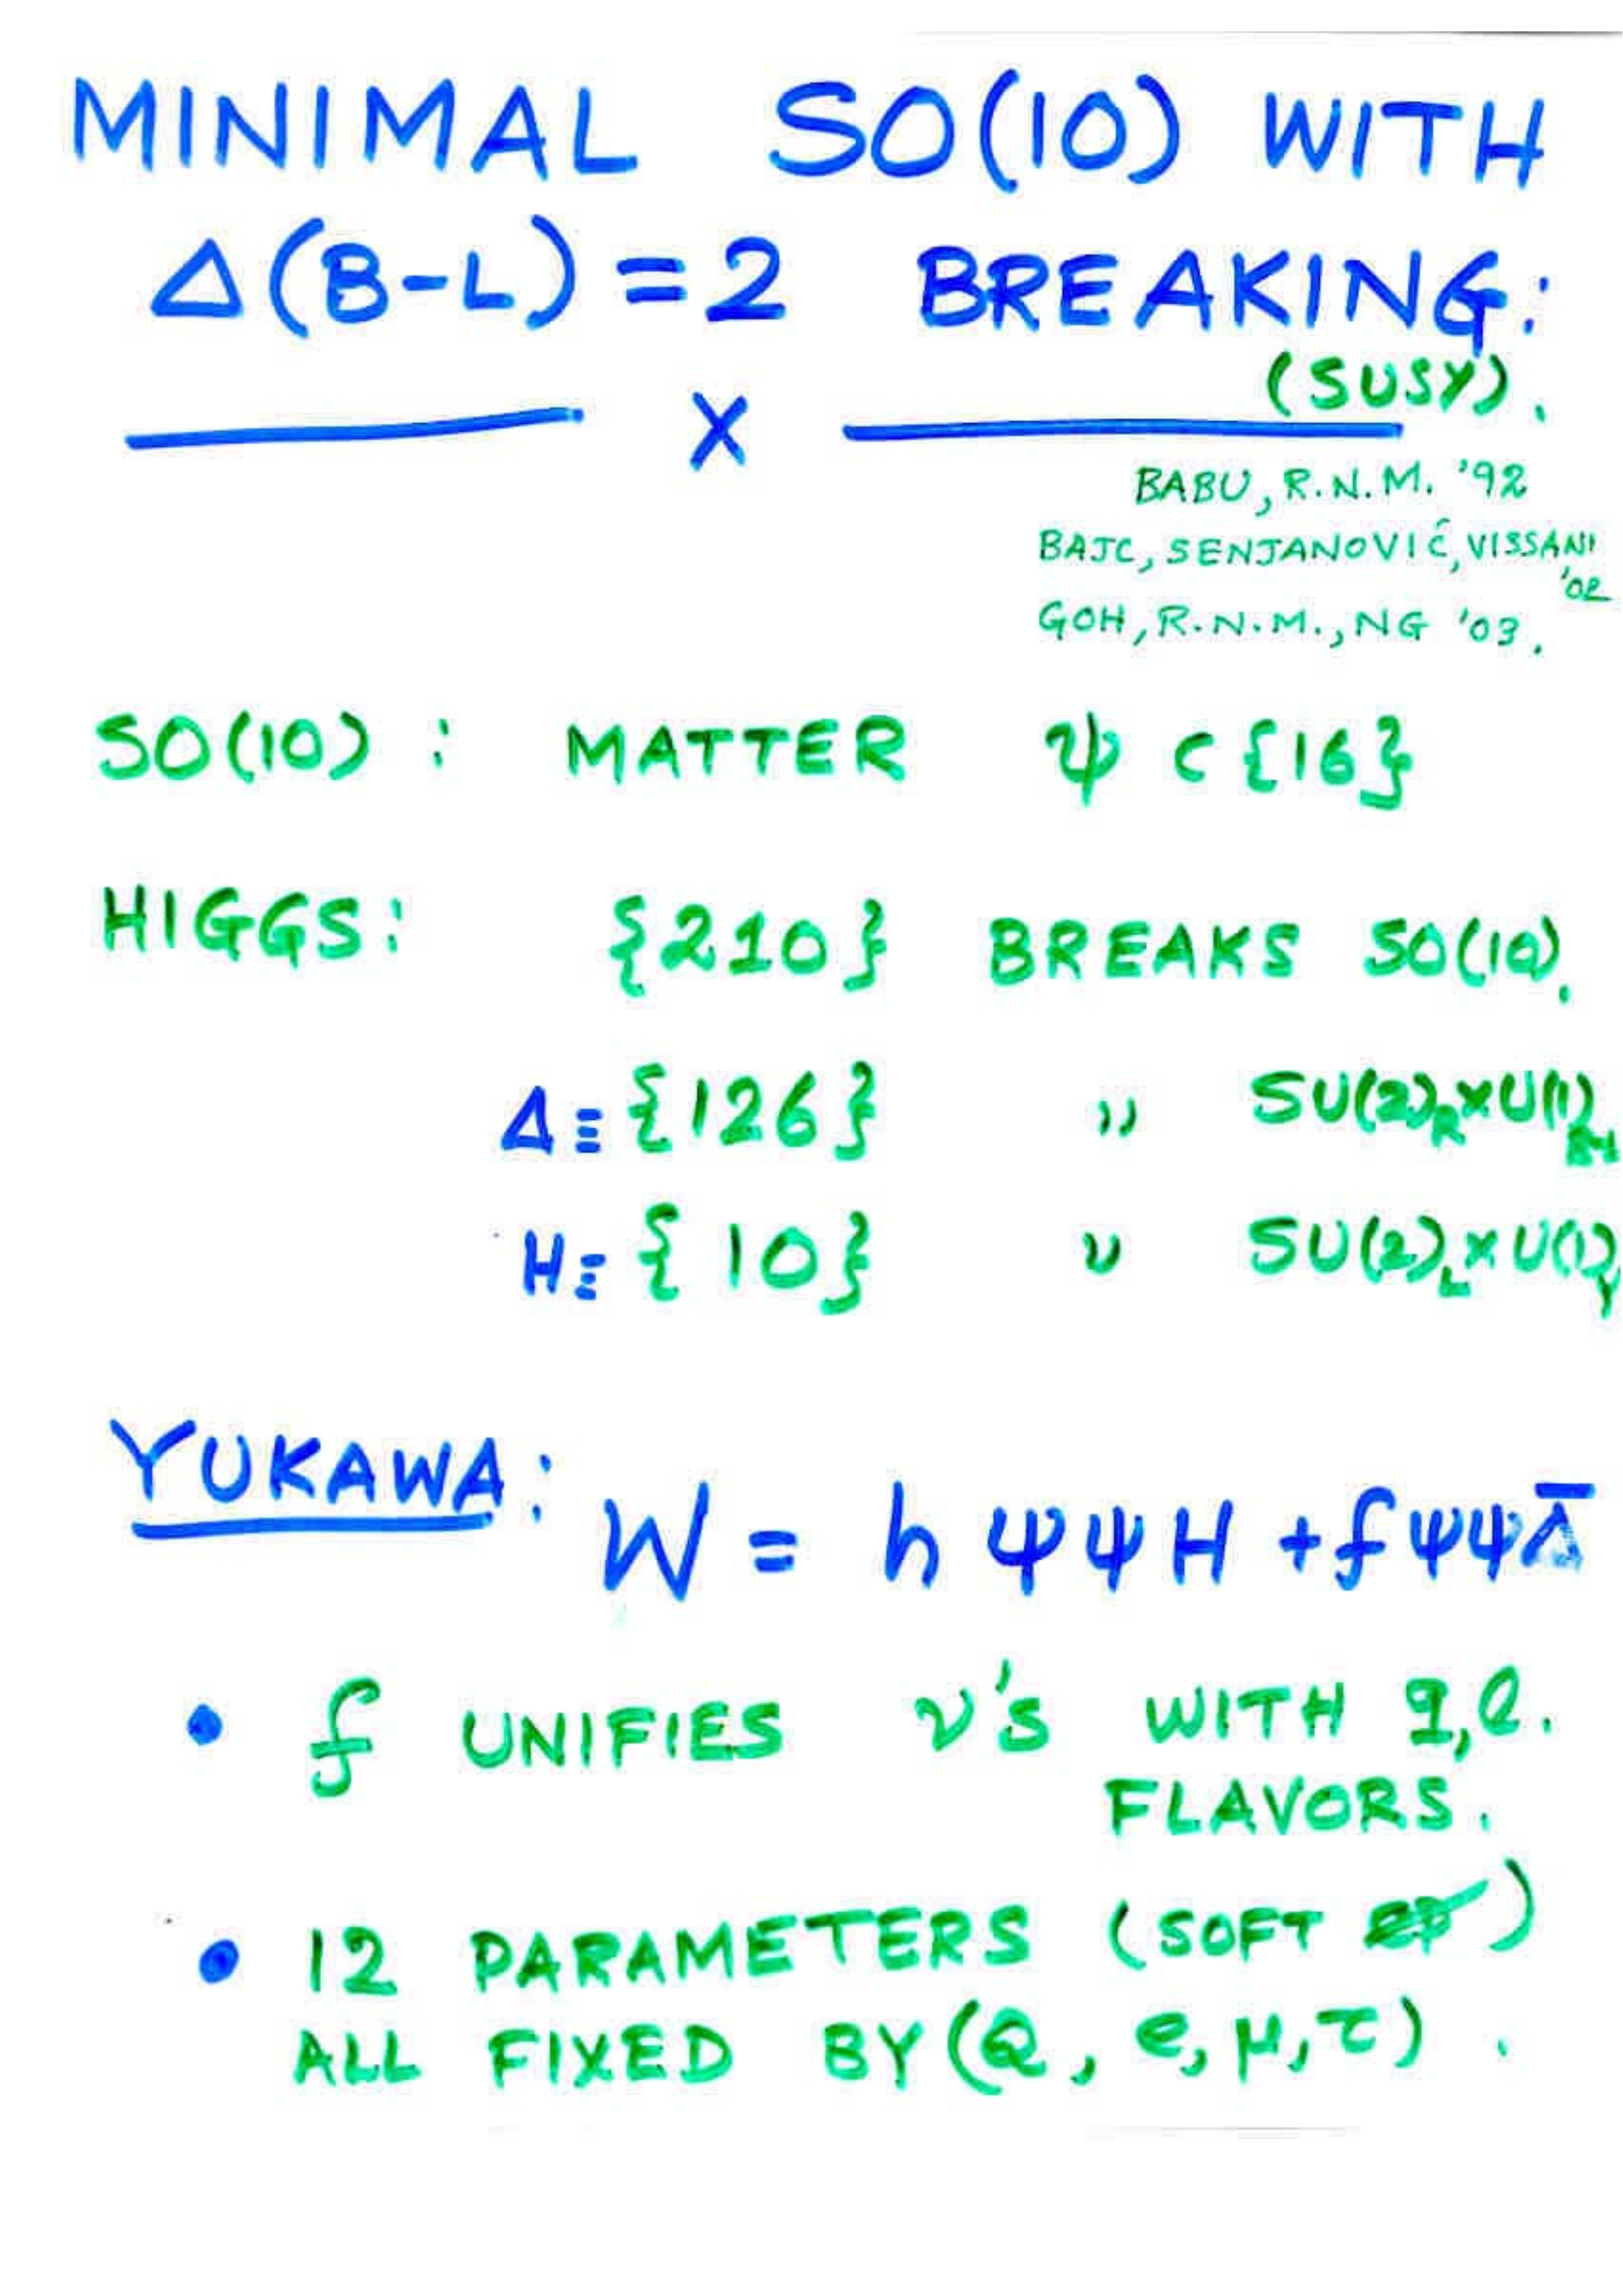 MINIMAL SO(10) WITH
Δ(B-L) = 2 BREAKING:
(SUSY).
x
BABU, R.N.M. '92
BAJC, SENJANOVIĆ, VISSANI
'02
GOH, R.N.M., NG '03.
SO(10) : MATTER ψ ⊂ {16}
HIGGS: {210} BREAKS SO(10).
Δ ≡ {126} " SU(2)_R×U(1)_B-L
H ≡ {10} " SU(2)_L×U(1)_Y
YUKAWA: W = h ψψH + f ψψΔ̄
• f UNIFIES ν's WITH q,ℓ.
FLAVORS.
• 12 PARAMETERS (SOFT C̸P̸)
ALL FIXED BY (Q, e, μ, τ).